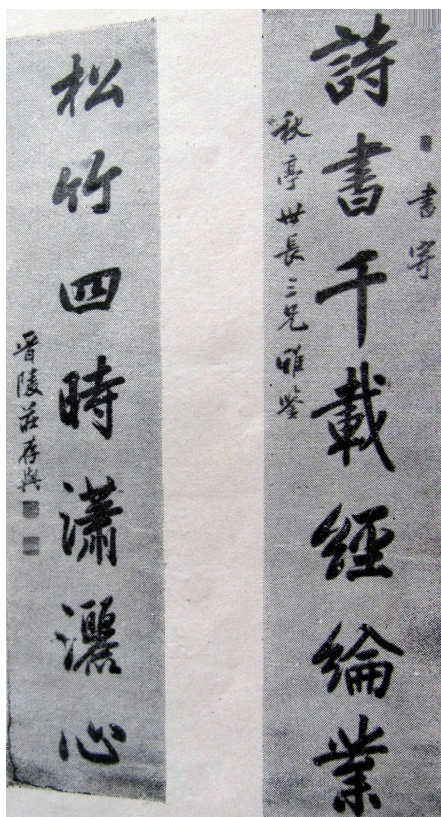 書寄
詩書千載經綸業
秋亭世長三兄雅鑒
松竹四時瀟灑心
晉陵莊存與